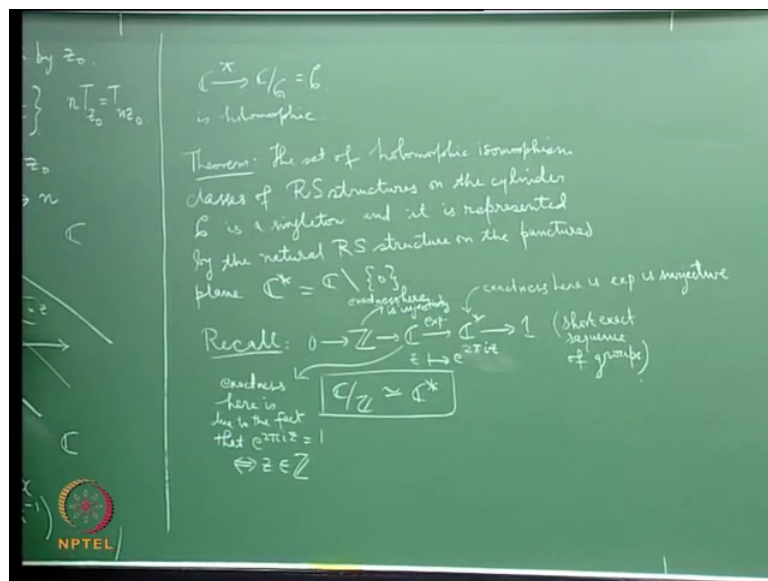 by z₀.
} nT_{z₀} = T_{nz₀}.
z₀
→ n
ℂ
ℂ
ℂ →^π ℂ/G = 𝒞
is holomorphic.
Theorem: The set of holomorphic isomorphism
classes of RS structures on the cylinder
𝒞 is a singleton and it is represented
by the natural RS structure on the punctured
plane ℂ* = ℂ \ {0}
exactness here is injectivity
exactness here is exp is surjective
Recall: 0 → ℤ → ℂ →^{exp} ℂ* → 1 (short exact sequence of groups)
z ↦ e^{2πiz}
exactness
here is
due to the fact
that e^{2πiz} = 1
⇔ z ∈ ℤ
ℂ/ℤ ≃ ℂ*
NPTEL